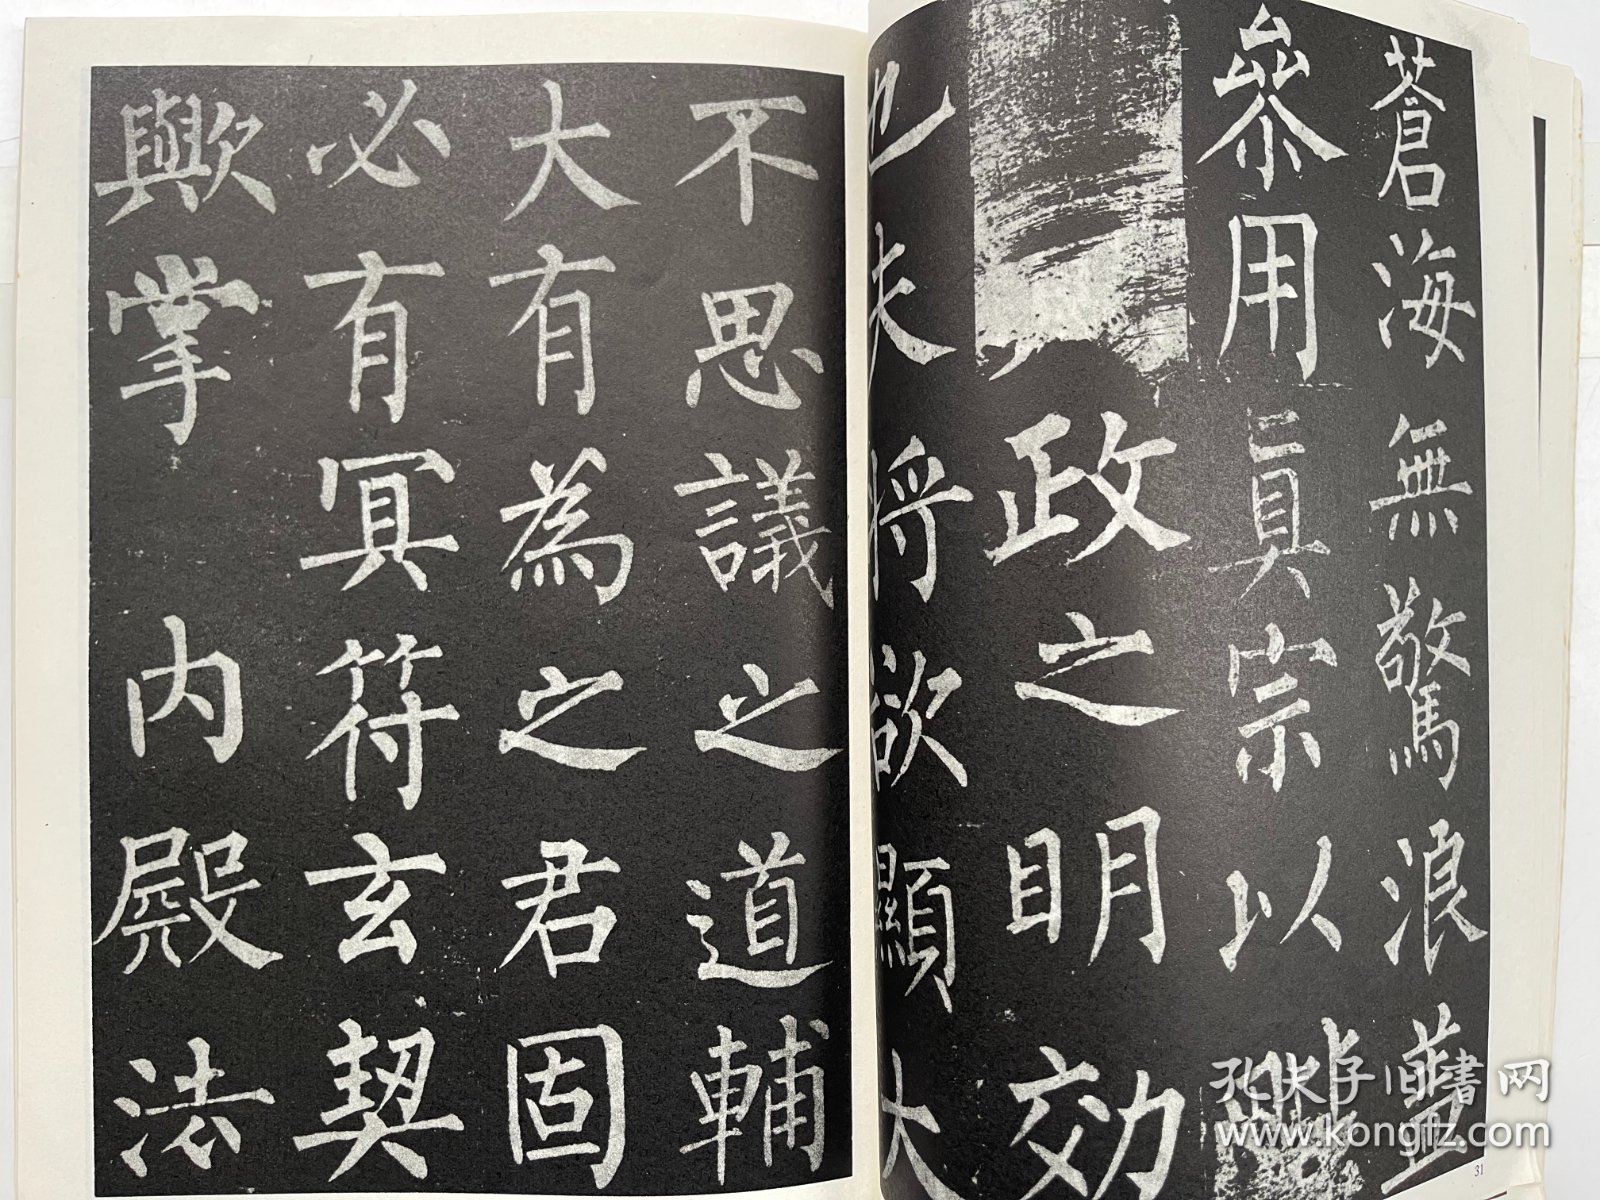 蒼海無驚浪蓋
參用真宗以毗
政之明効
也夫將欲顯大
不思議之道輔
大有為之君固
必有冥符玄契
歟掌內殿法
31
孔夫子旧書网
www.kongfz.com